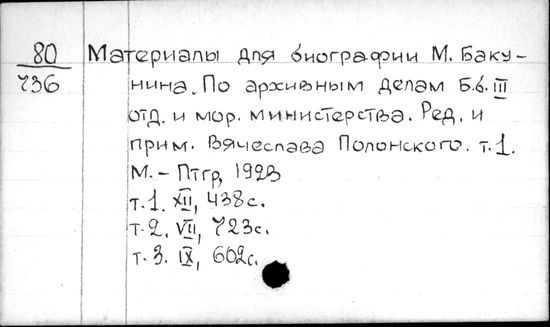 80 Материалы для биографии М. Баку-
736 нина. По архивным делам б.б. III
отд. и мор. министерства. Ред. и
прим. Вячеслава Полонского. т.1.
М. - Птгр, 1923
т.1. XII, 438с.
т.2. VII, 723с.
т.3. IX, 602с.